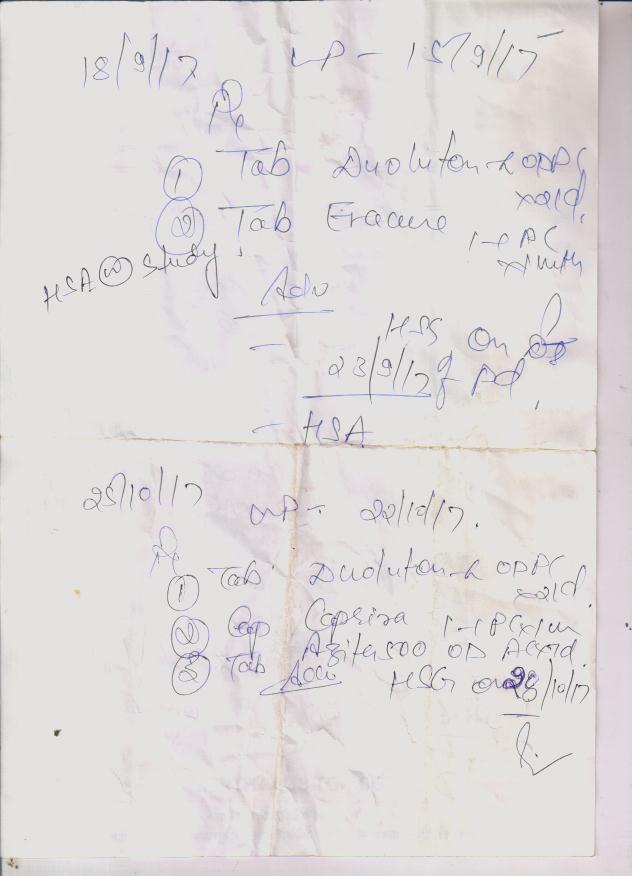 18/9/17 LMP - 15/9/17
Rx
① Tab Duoluton-L OD PC
x21d.
② Tab Eracure
1-1 PC
x1mth
HSA study.
Adv
- HSG on
23/9/17 if Pd.
- HSA
25/10/17 LMP - 22/10/17.
Rx
① Tab Duoluton-L OD PC
x21d.
② Cap 1-1 PC x1m
③ Tab Azifer500 OD AC x7d.
Adv HSG on 28/10/17